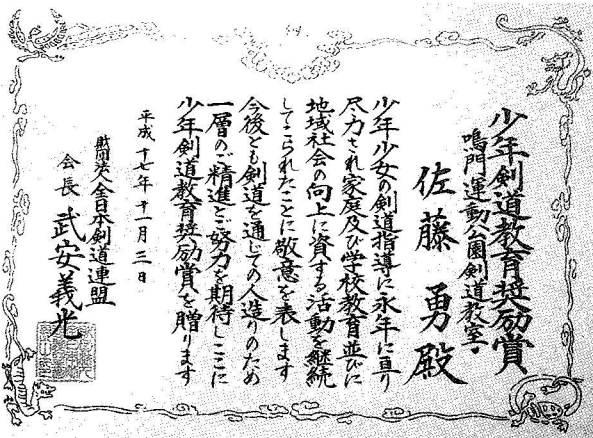 少年剣道教育奨励賞
鳴門運動公園剣道教室
佐藤勇殿
少年少女の剣道指導に永年に亘り
尽力され家庭及び学校教育並びに
地域社会の向上に資する活動を継続
してこられたことに敬意を表します
今後とも剣道を通じての人造りのため
一層のご精進とご努力を期待しここに
少年剣道教育奨励賞を贈ります
平成十七年十一月三日
財団法人全日本剣道連盟
会長武安義光